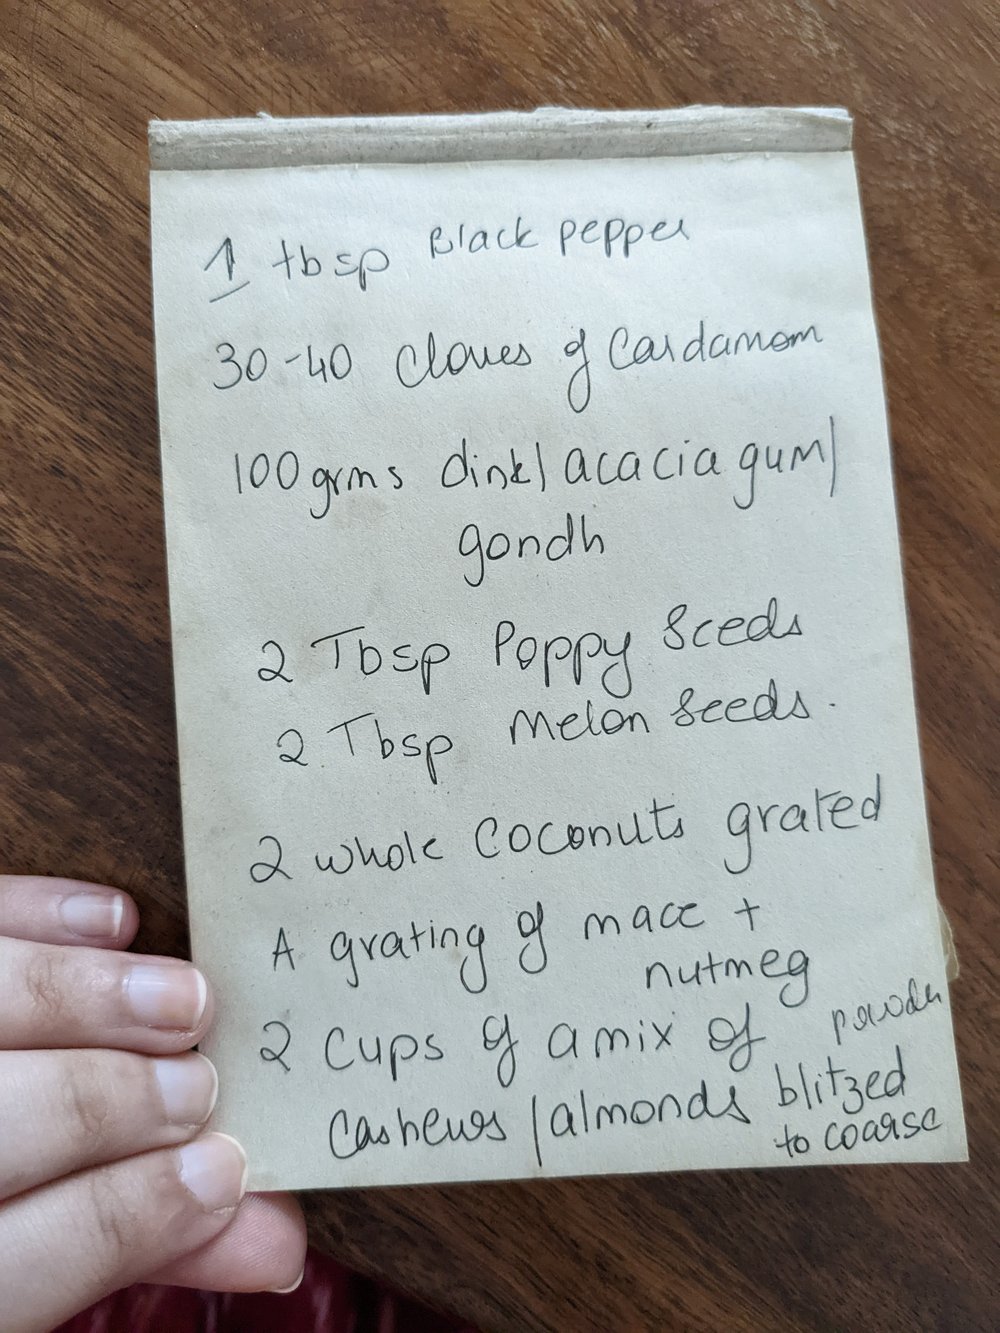 1 tbsp Black pepper
30-40 Cloves of Cardamom
100 grms dink/acacia gum/
gondh
2 Tbsp Poppy Seeds
2 Tbsp Melon Seeds.
2 whole Coconuts grated
A grating of mace +
nutmeg
2 Cups of a mix of
Cashews/almonds blitzed
to coarse
powder